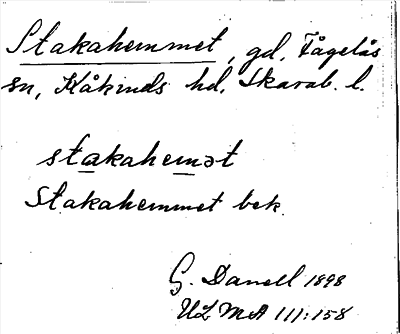 Stakahemmet, gd, Fågelås
sn, Kåkinds hd, Skarab. l.
stakahemət
Stakahemmet bek.
G. Danell 1898
ULMA 111:158